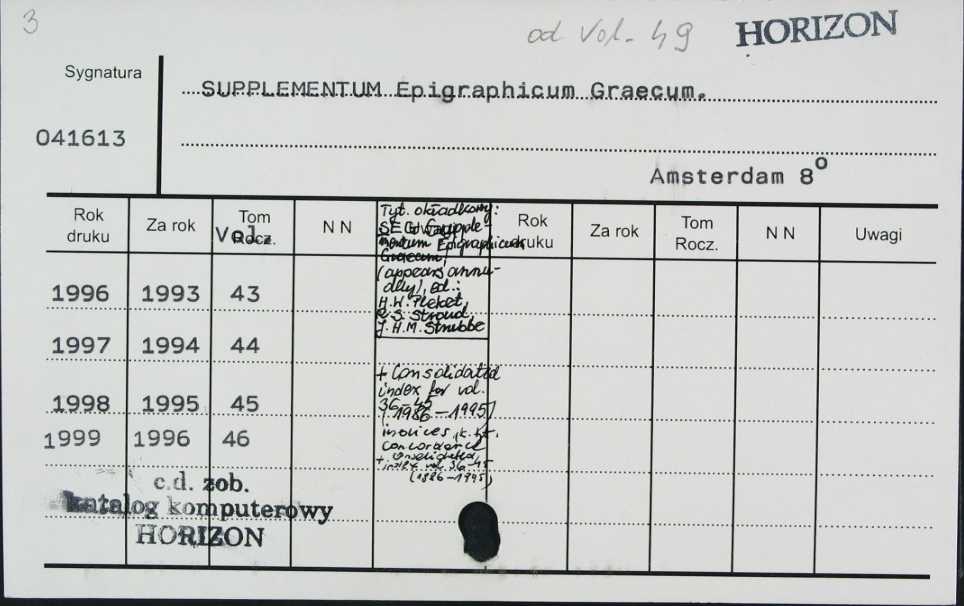 3
od vol. 49 HORIZON
Sygnatura
SUPPLEMENTUM Epigraphicum Graecum.
041613
Amsterdam 8º
Rok druku Za rok Tom Rocz. Vol. N N Uwagi Rok druku Za rok Tom Rocz. N N Uwagi
Tyt. okładkowy:
SEG Supple-
mentum Epigraphicum
Graecum,
(appears annu-
ally), ed.:
H.W. Pleket,
R.S. Stroud,
J.H.M. Strubbe
1996 1993 43
1997 1994 44
1998 1995 45
1999 1996 46
+ Consolidated
index for vol.
36-45
(1986-1995)
indices,
concordance
+ consolidated
index vol. 36-45
(1986-1995)
c.d. zob.
katalog komputerowy
HORIZON